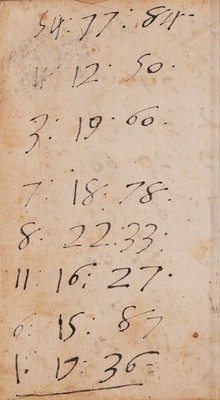 54: 77: 84.
11 12 50.
3: 19 60.
7: 18: 78.
8. 22:33:
11: 16: 27.
6: 15: 87
1: 17 36=